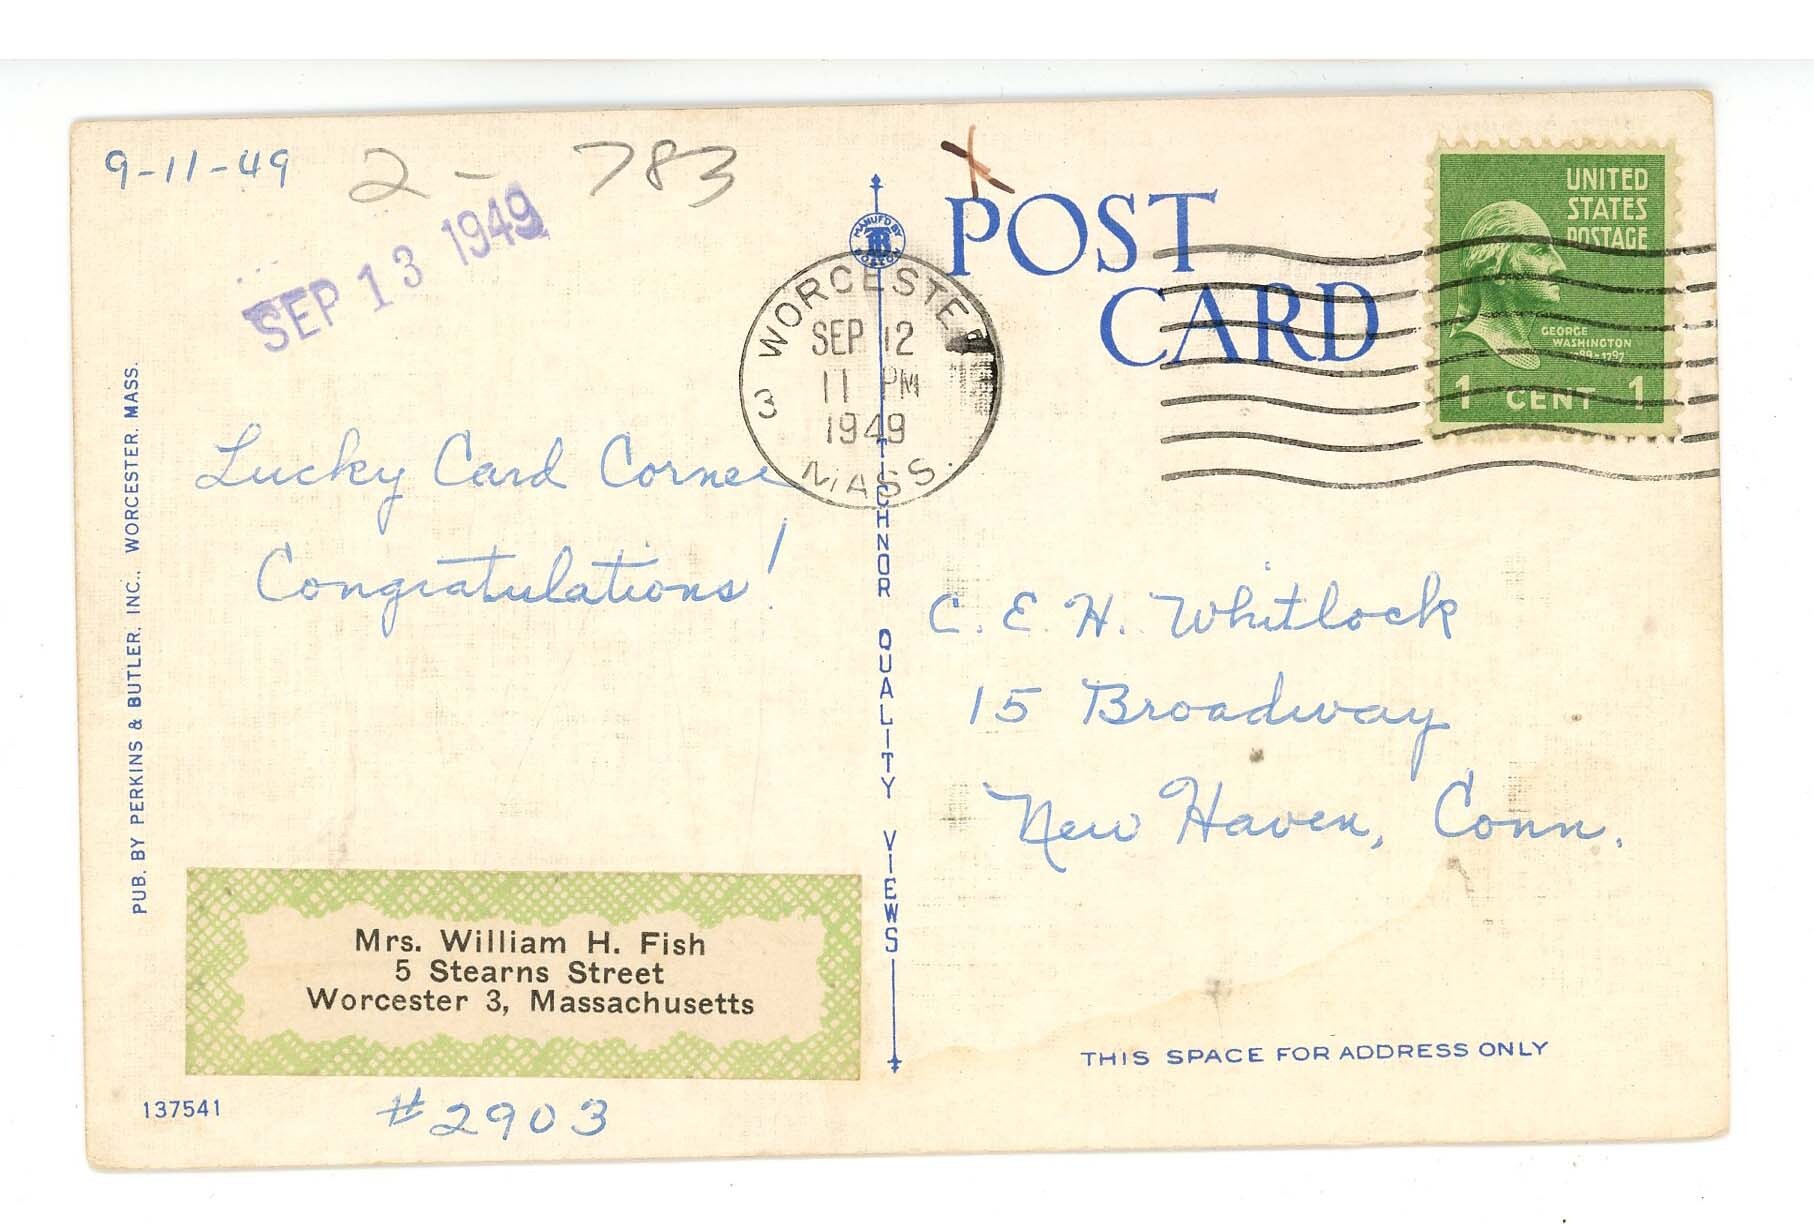 9-11-49
2 - 783
SEP 13 1949
Lucky Card Corner
Congratulations!
Mrs. William H. Fish
5 Stearns Street
Worcester 3, Massachusetts
137541
#2903
PUB. BY PERKINS & BUTLER, INC., WORCESTER, MASS.
MANUF'D BY
BOSTON
TICHNOR QUALITY VIEWS
WORCESTER
3
SEP 12
11 PM
1949
MASS.
POST
CARD
UNITED
STATES
POSTAGE
GEORGE
WASHINGTON
1789-1797
1 CENT 1
C. E. H. Whitlock
15 Broadway
New Haven, Conn.
THIS SPACE FOR ADDRESS ONLY